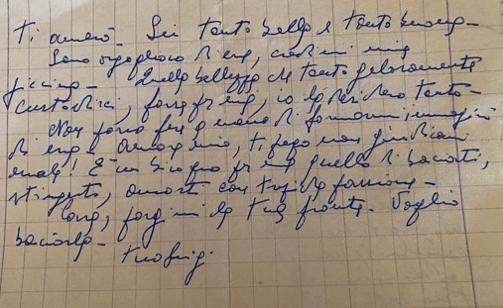 Ti amerò - Sei tanto bella e tanto buona -
Sono orgoglioso di te, credimi mia
piccina - Quella bellezza che tanto gelosamente
custodisci, forse per me, io la desidero tanto -
Non posso fare a meno di formarmi immagini
di te e amore mio, ti prego non giudicarmi
male! È un bisogno per me quello di baciarti,
stringerti, amarti con tutta passione -
Cara, porgimi la tua fronte. Voglio
baciarla -
tuo